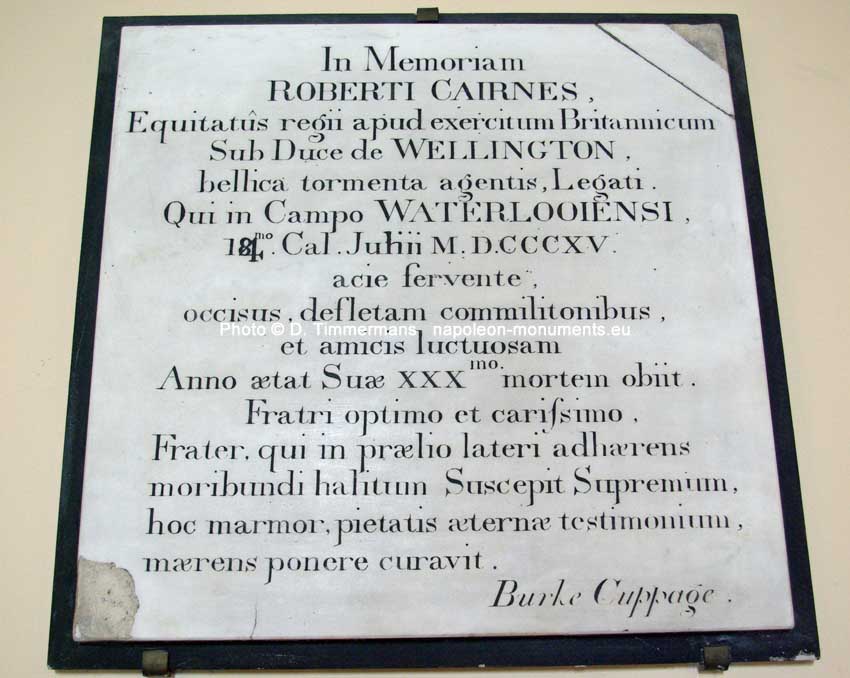 In Memoriam
ROBERTI CAIRNES,
Equitatûs regii apud exercitum Britannicum
Sub Duce de WELLINGTON,
bellica tormenta agentis, Legati.
Qui in Campo WATERLOOIENSI,
184.mo Cal. Juliii M.D.CCCXV.
acie fervente,
occisus, defletam commilitonibus,
Photo © D. Timmermans napoleon-monuments.eu
et amicis luctuosam
Anno ætat Suæ XXXmo. mortem obiit.
Fratri optimo et cariſsimo,
Frater, qui in prælio lateri adhærens
moribundi halitum Suscepit Supremum,
hoc marmor, pietatis æternæ testimonium,
mærens ponere curavit.
Burke Cuppage.